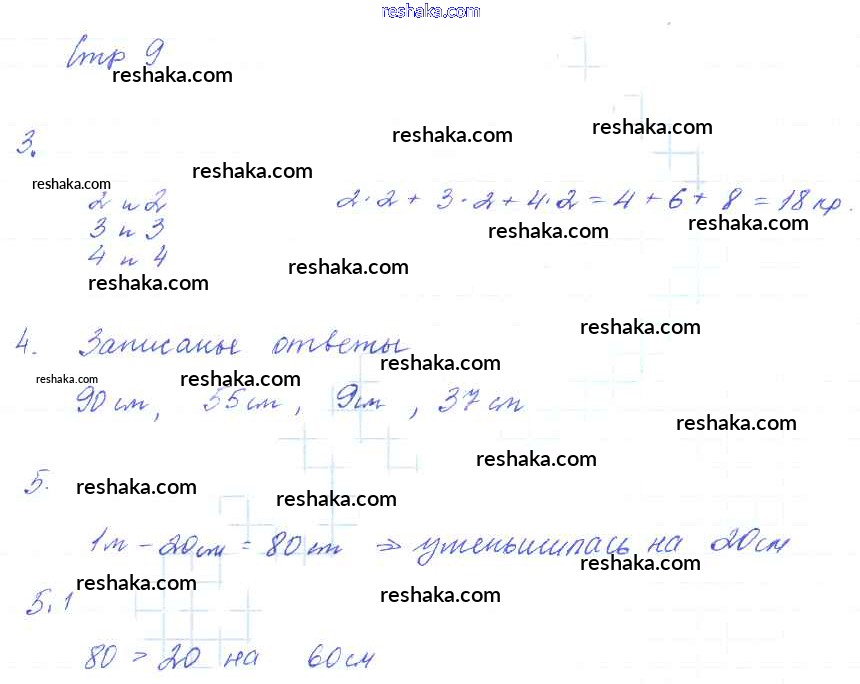 reshaka.com
Стр 9
reshaka.com
3.
reshaka.com
reshaka.com
reshaka.com
reshaka.com
2 и 2
2·2 + 3·2 + 4·2 = 4 + 6 + 8 = 18 пр.
3 и 3
reshaka.com
reshaka.com
4 и 4
reshaka.com
reshaka.com
reshaka.com
4. Записаные ответы
reshaka.com
reshaka.com
reshaka.com
90 см, 55 см, 9 см, 37 см
reshaka.com
reshaka.com
5.
reshaka.com
reshaka.com
1м - 20см = 80 см => уменьшилась на 20 см
reshaka.com
reshaka.com
reshaka.com
5.1
80 > 20 на 60 см